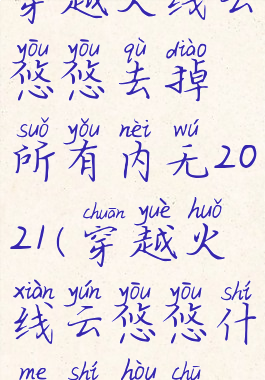 穿越火线云
yōu yōu qù diào
悠悠去掉
suǒ yǒu nèi wú
所有内无20
chuān yuè huǒ
21(穿越火
xiàn yún yōu yōu shí
线云悠悠什
me shí hòu chū